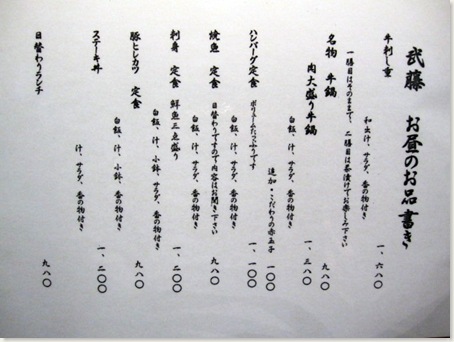 武藤 お昼のお品書き
牛刺し重
和出汁、サラダ、香の物付き 一、六八〇
一膳目はそのままで、二膳目は茶漬けでお楽しみ下さい
名物 牛鍋 九八〇
肉大盛り牛鍋 一、三八〇
白飯、汁、サラダ、香の物付き
追加・こだわりの赤玉子 一〇〇
ハンバーグ定食 ボリュームたっぷりです 一、一〇〇
白飯、汁、サラダ、香の物付き
焼魚 定食 日替わりですので内容はお聞き下さい 九八〇
白飯、汁、サラダ、香の物付き
刺身 定食 鮮魚三点盛り 一、二〇〇
白飯、汁、小鉢、サラダ、香の物付き
豚ヒレカツ 定食 九八〇
白飯、汁、小鉢、サラダ、香の物付き
ステーキ丼 一、二〇〇
汁、サラダ、香の物付き
日替わりランチ 九八〇